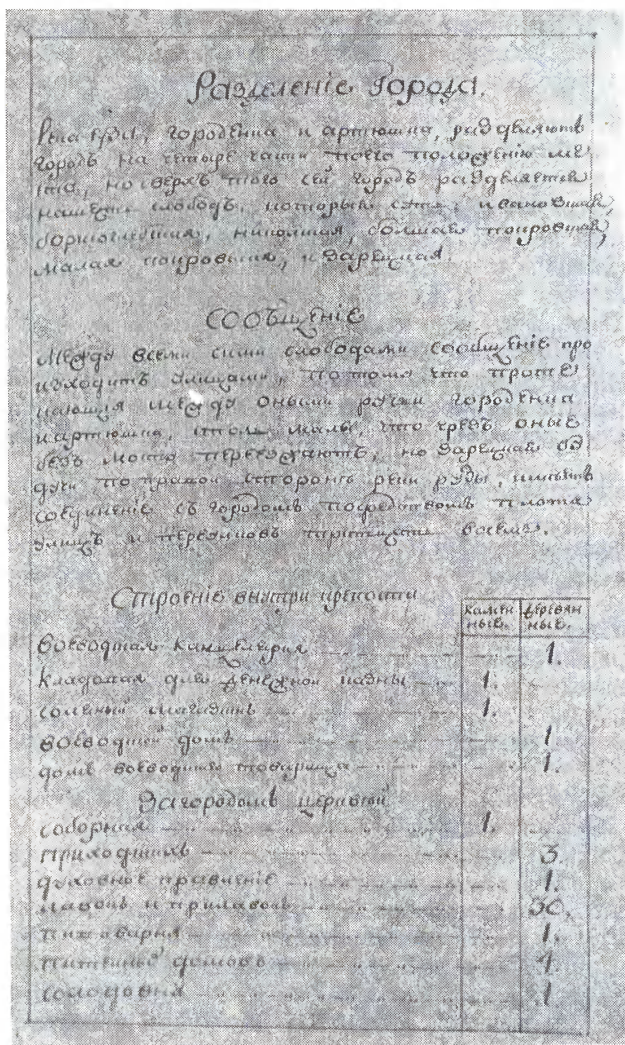 Разделенiе Города.
Река руза, городенка и артюшка, раздѣляютъ
городъ на четыре части по его положенiю ме
ста, но сверхъ того сей городъ раздѣляется
на шесть слободъ, которыя суть, ивановская,
борисоглебская, никольская, большая покровская,
малая покровская, и зарецкая.
СООБЩЕНIЕ
Между всеми сими слободами сообщенiе про
изходитъ улицами, потому что проте
кающiя между оными речки городенка
и артюшка, столь малы, что чрезъ оные
безъ мосту переезжаютъ, но зарецкая бу
дучи по правой стороне реки рузы, имеетъ
соединенiе съ городомъ посредствомъ плота
улицъ и переулковъ тритцать восемь.
Строенiе внутри крепости
камен деревян
ные. ные.
воеводская канцелярiя 1.
кладовая для денежной казны 1.
соленый магазинъ 1.
воеводской домъ 1
домъ воеводского товарища 1.
За городомъ церквей
соборная 1.
приходскихъ 3.
духовное правленiе 1.
лавокъ и прилавокъ 30.
пивоварня 1.
питейныхъ домовъ 4
солодовня 1